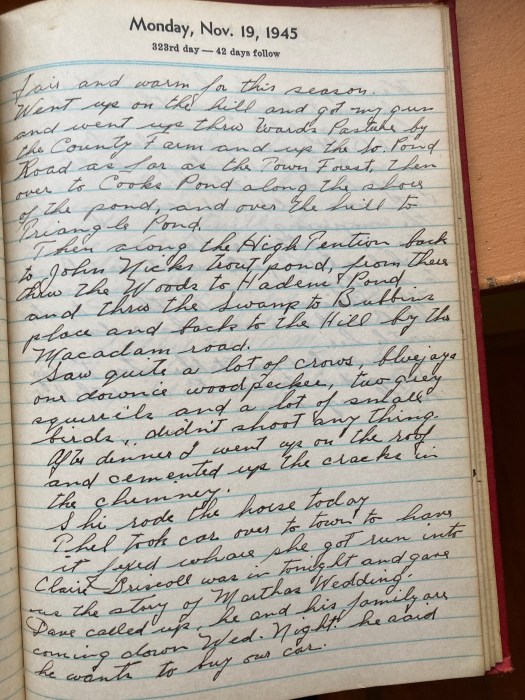 Monday, Nov. 19, 1945
323rd day — 42 days follow
Fair and warm for this season.
Went up on the hill and got my gun
and went up thru Wards Pasture by
the County Farm and up the So. Pond
Road as far as the Town Forest, then
over to Cooks Pond along the shore
of the pond, and over the hill to
Triangle Pond.
Then along the High Tention back
to John Nicks trout pond, from there
thru the Woods to Hadens Pond
and thru the Swamp to Bubbins
place and back to the Hill by the
Macadam road.
Saw quite a lot of crows, bluejays
one downie woodpecker, two grey
squirrils and a lot of small
birds, didn't shoot any thing.
After dinner I went up on the roof
and cemented up the cracks in
the chimney.
Shi rode the horse today
Phel took car over to town to have
it fixed whare she got run into
Claire Driscoll was in tonight and gave
us the story of Marthas Wedding.
Dave called up, he and his family are
coming down Wed. Night. he said
he wants to buy our car.